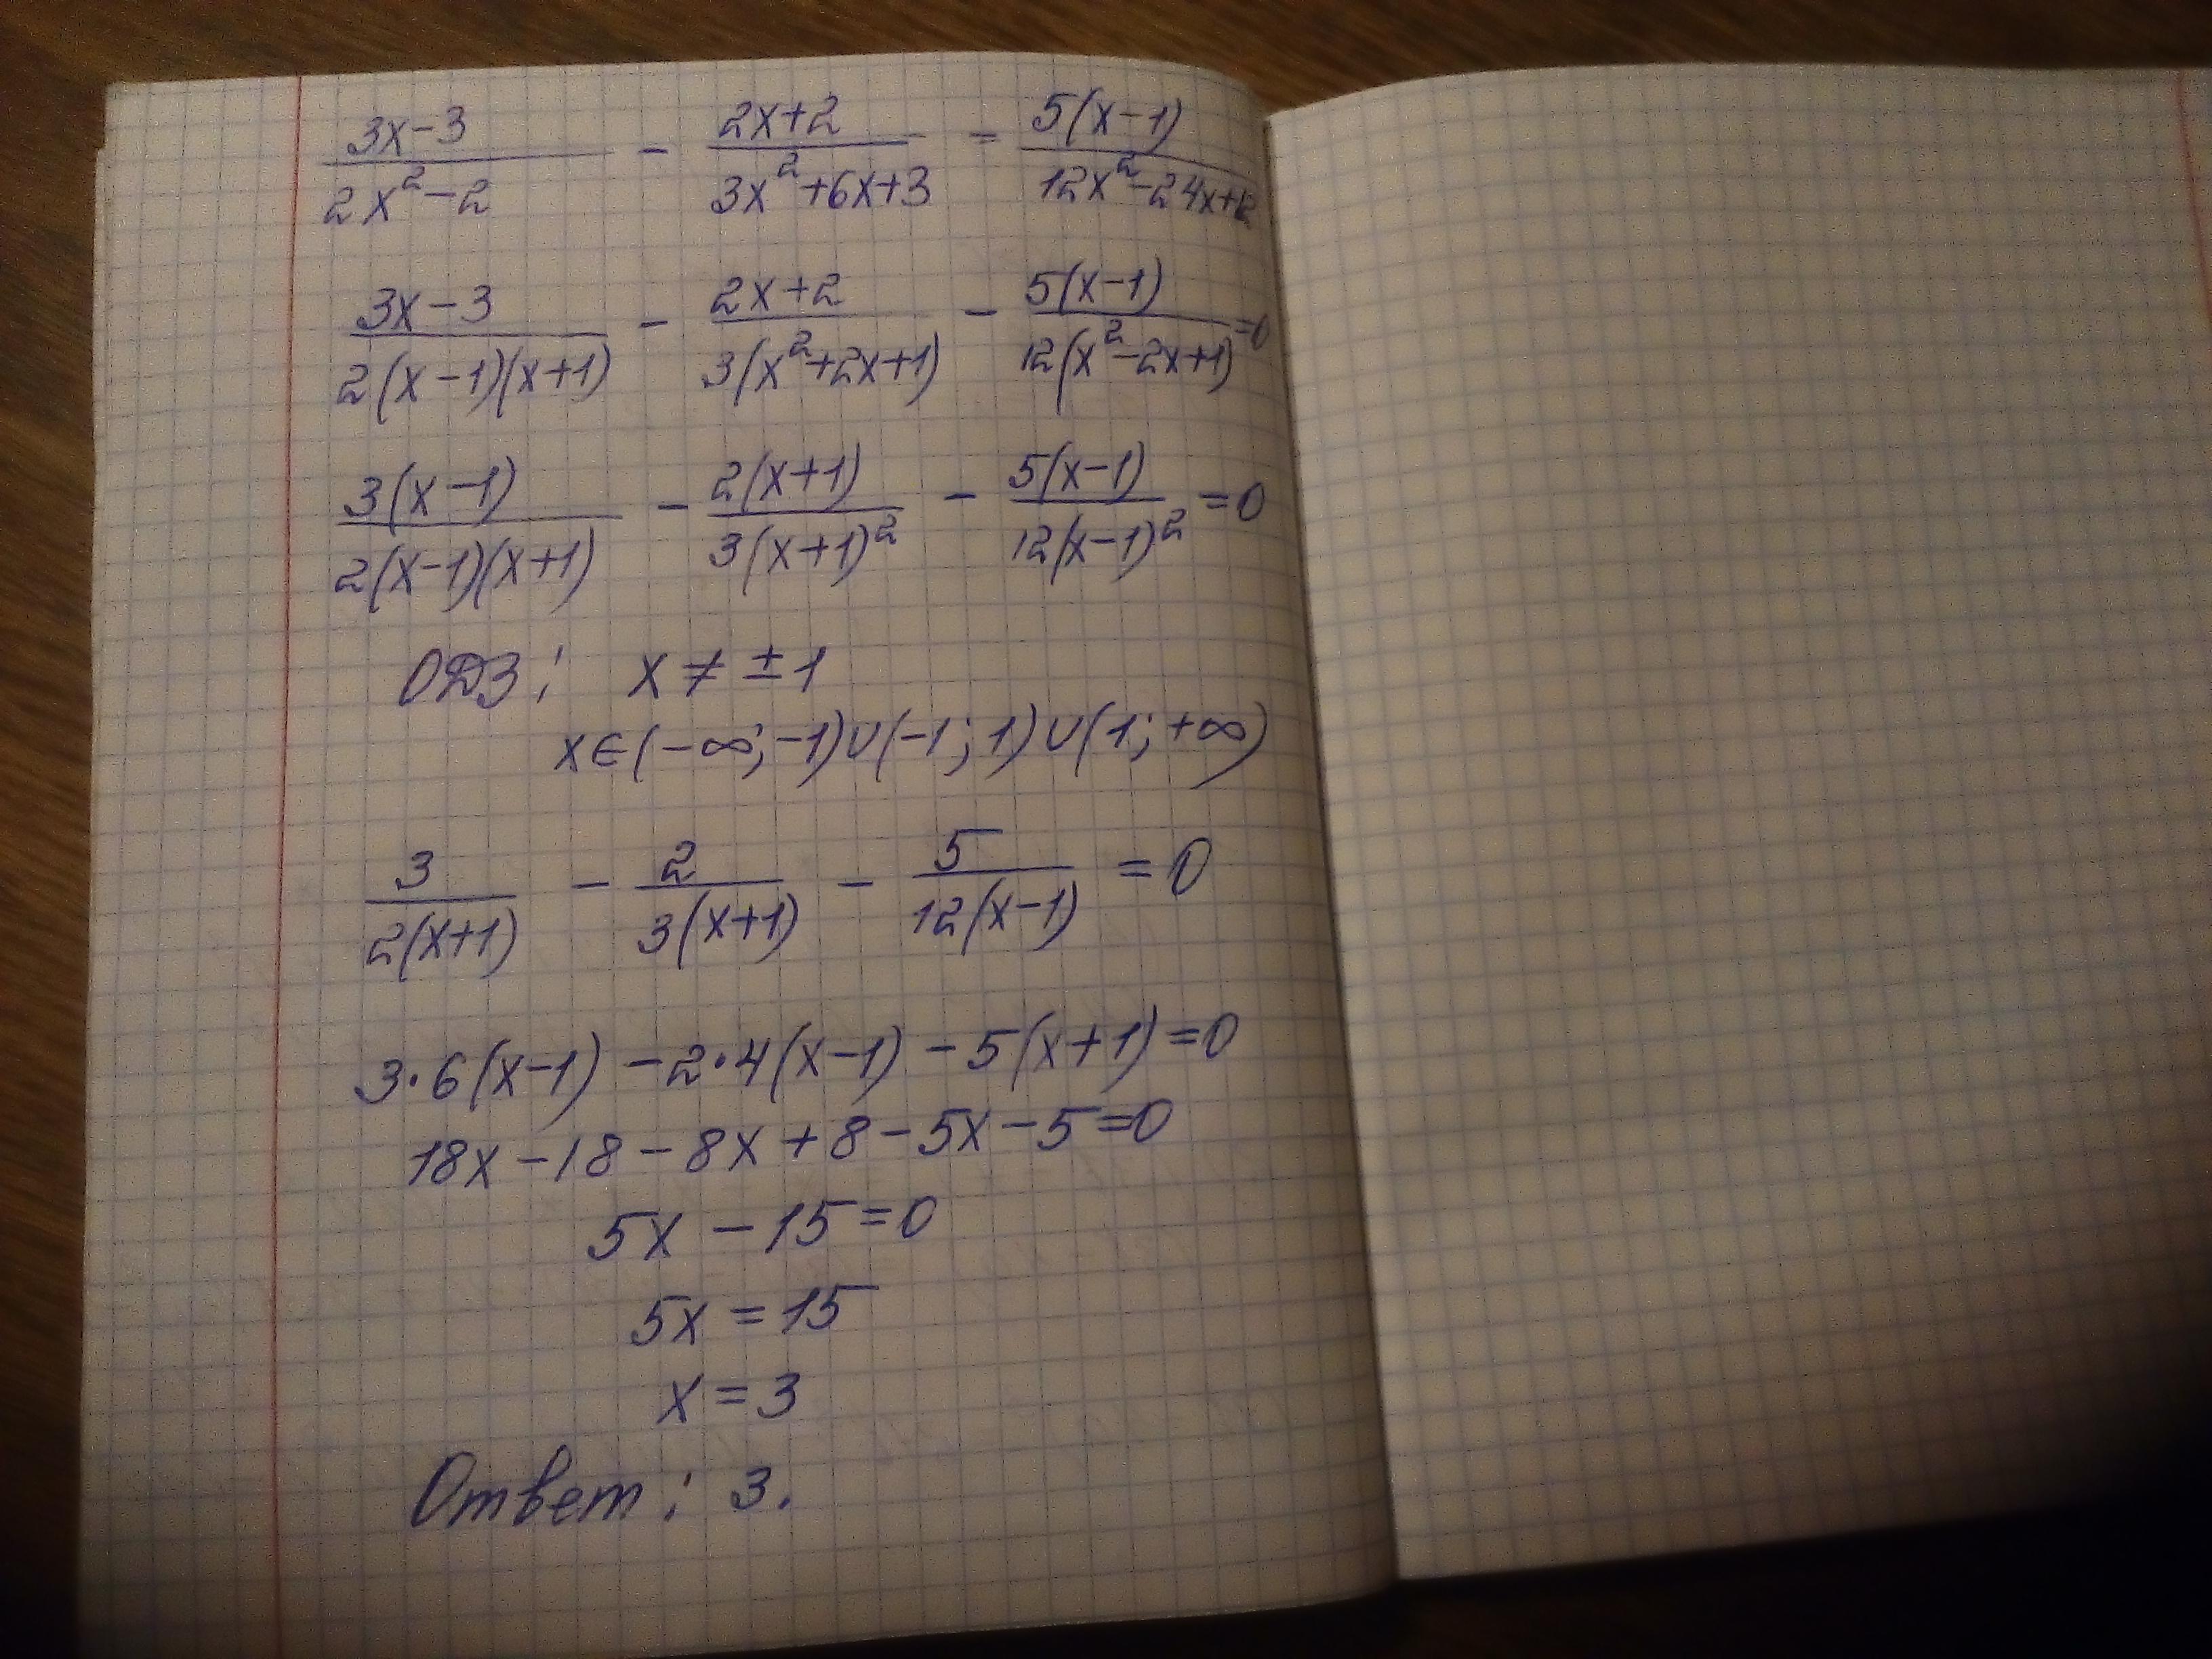 (3x-3)/(2x²-2) - (2x+2)/(3x²+6x+3) = 5(x-1)/(12x²-24x+12)
(3x-3)/(2(x-1)(x+1)) - (2x+2)/(3(x²+2x+1)) - 5(x-1)/(12(x²-2x+1)) =0
3(x-1)/(2(x-1)(x+1)) - 2(x+1)/(3(x+1)²) - 5(x-1)/(12(x-1)²) =0
ОДЗ: x ≠ ±1
x∈(-∞;-1)∪(-1;1)∪(1;+∞)
3/(2(x+1)) - 2/(3(x+1)) - 5/(12(x-1)) = 0
3·6(x-1) -2·4(x-1) -5(x+1)=0
18x-18-8x+8-5x-5=0
5x-15=0
5x=15
x=3
Ответ: 3.